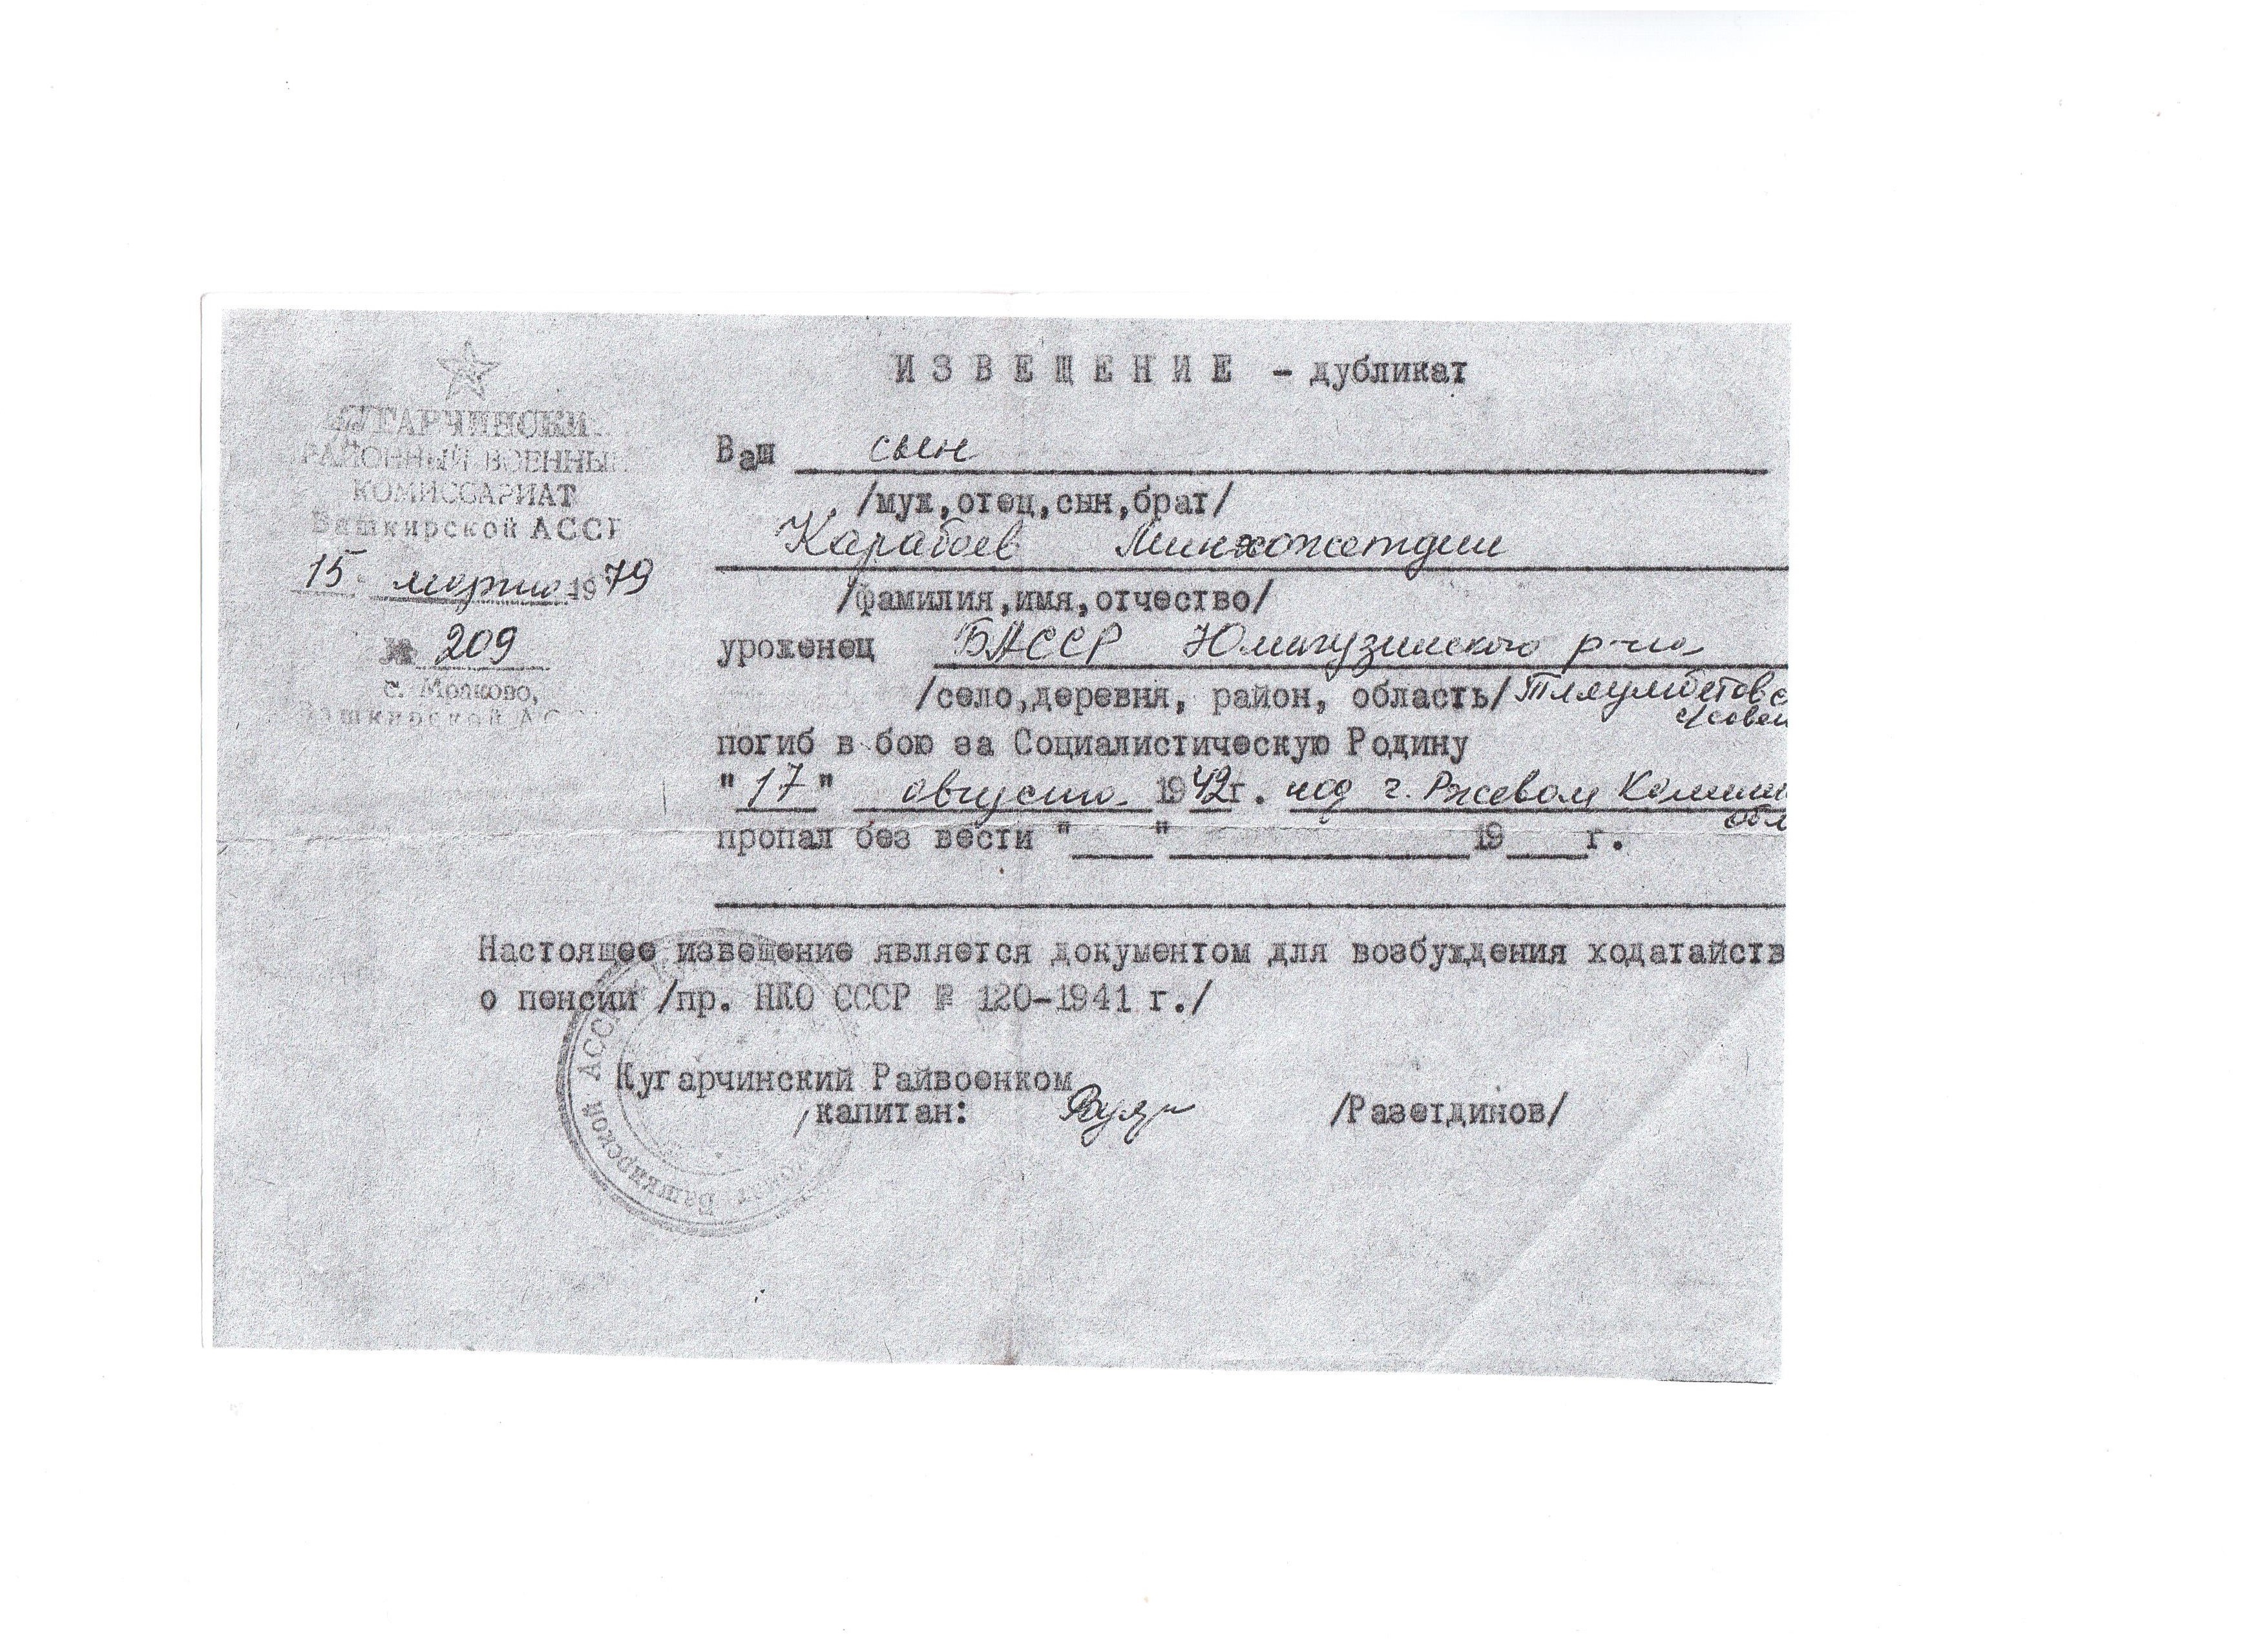 ИЗВЕЩЕНИЕ - дубликат
КУГАРЧИНСКИ
РАЙОННЫЙ ВОЕННЫЙ
КОМИССАРИАТ
Башкирской АССР
15 марта 1979
№ 209
с. Мраково,
Башкирской АС
Ваш сын
/муж,отец,сын,брат/
Карабаев
/фамилия,имя,отчество/
уроженец БАССР Юмагузинского р-на
/село,деревня, район, область/
погиб в бою за Социалистическую Родину
"17" августа 1942г. под г. Ржевом Калини
обл
пропал без вести " " 19 г.
Настоящее извещение является документом для возбуждения ходатайств
о пенсии /пр. НКО СССР № 120-1941 г./
Кугарчинский Райвоенком
капитан: /Разетдинов/
Башкирской АССР